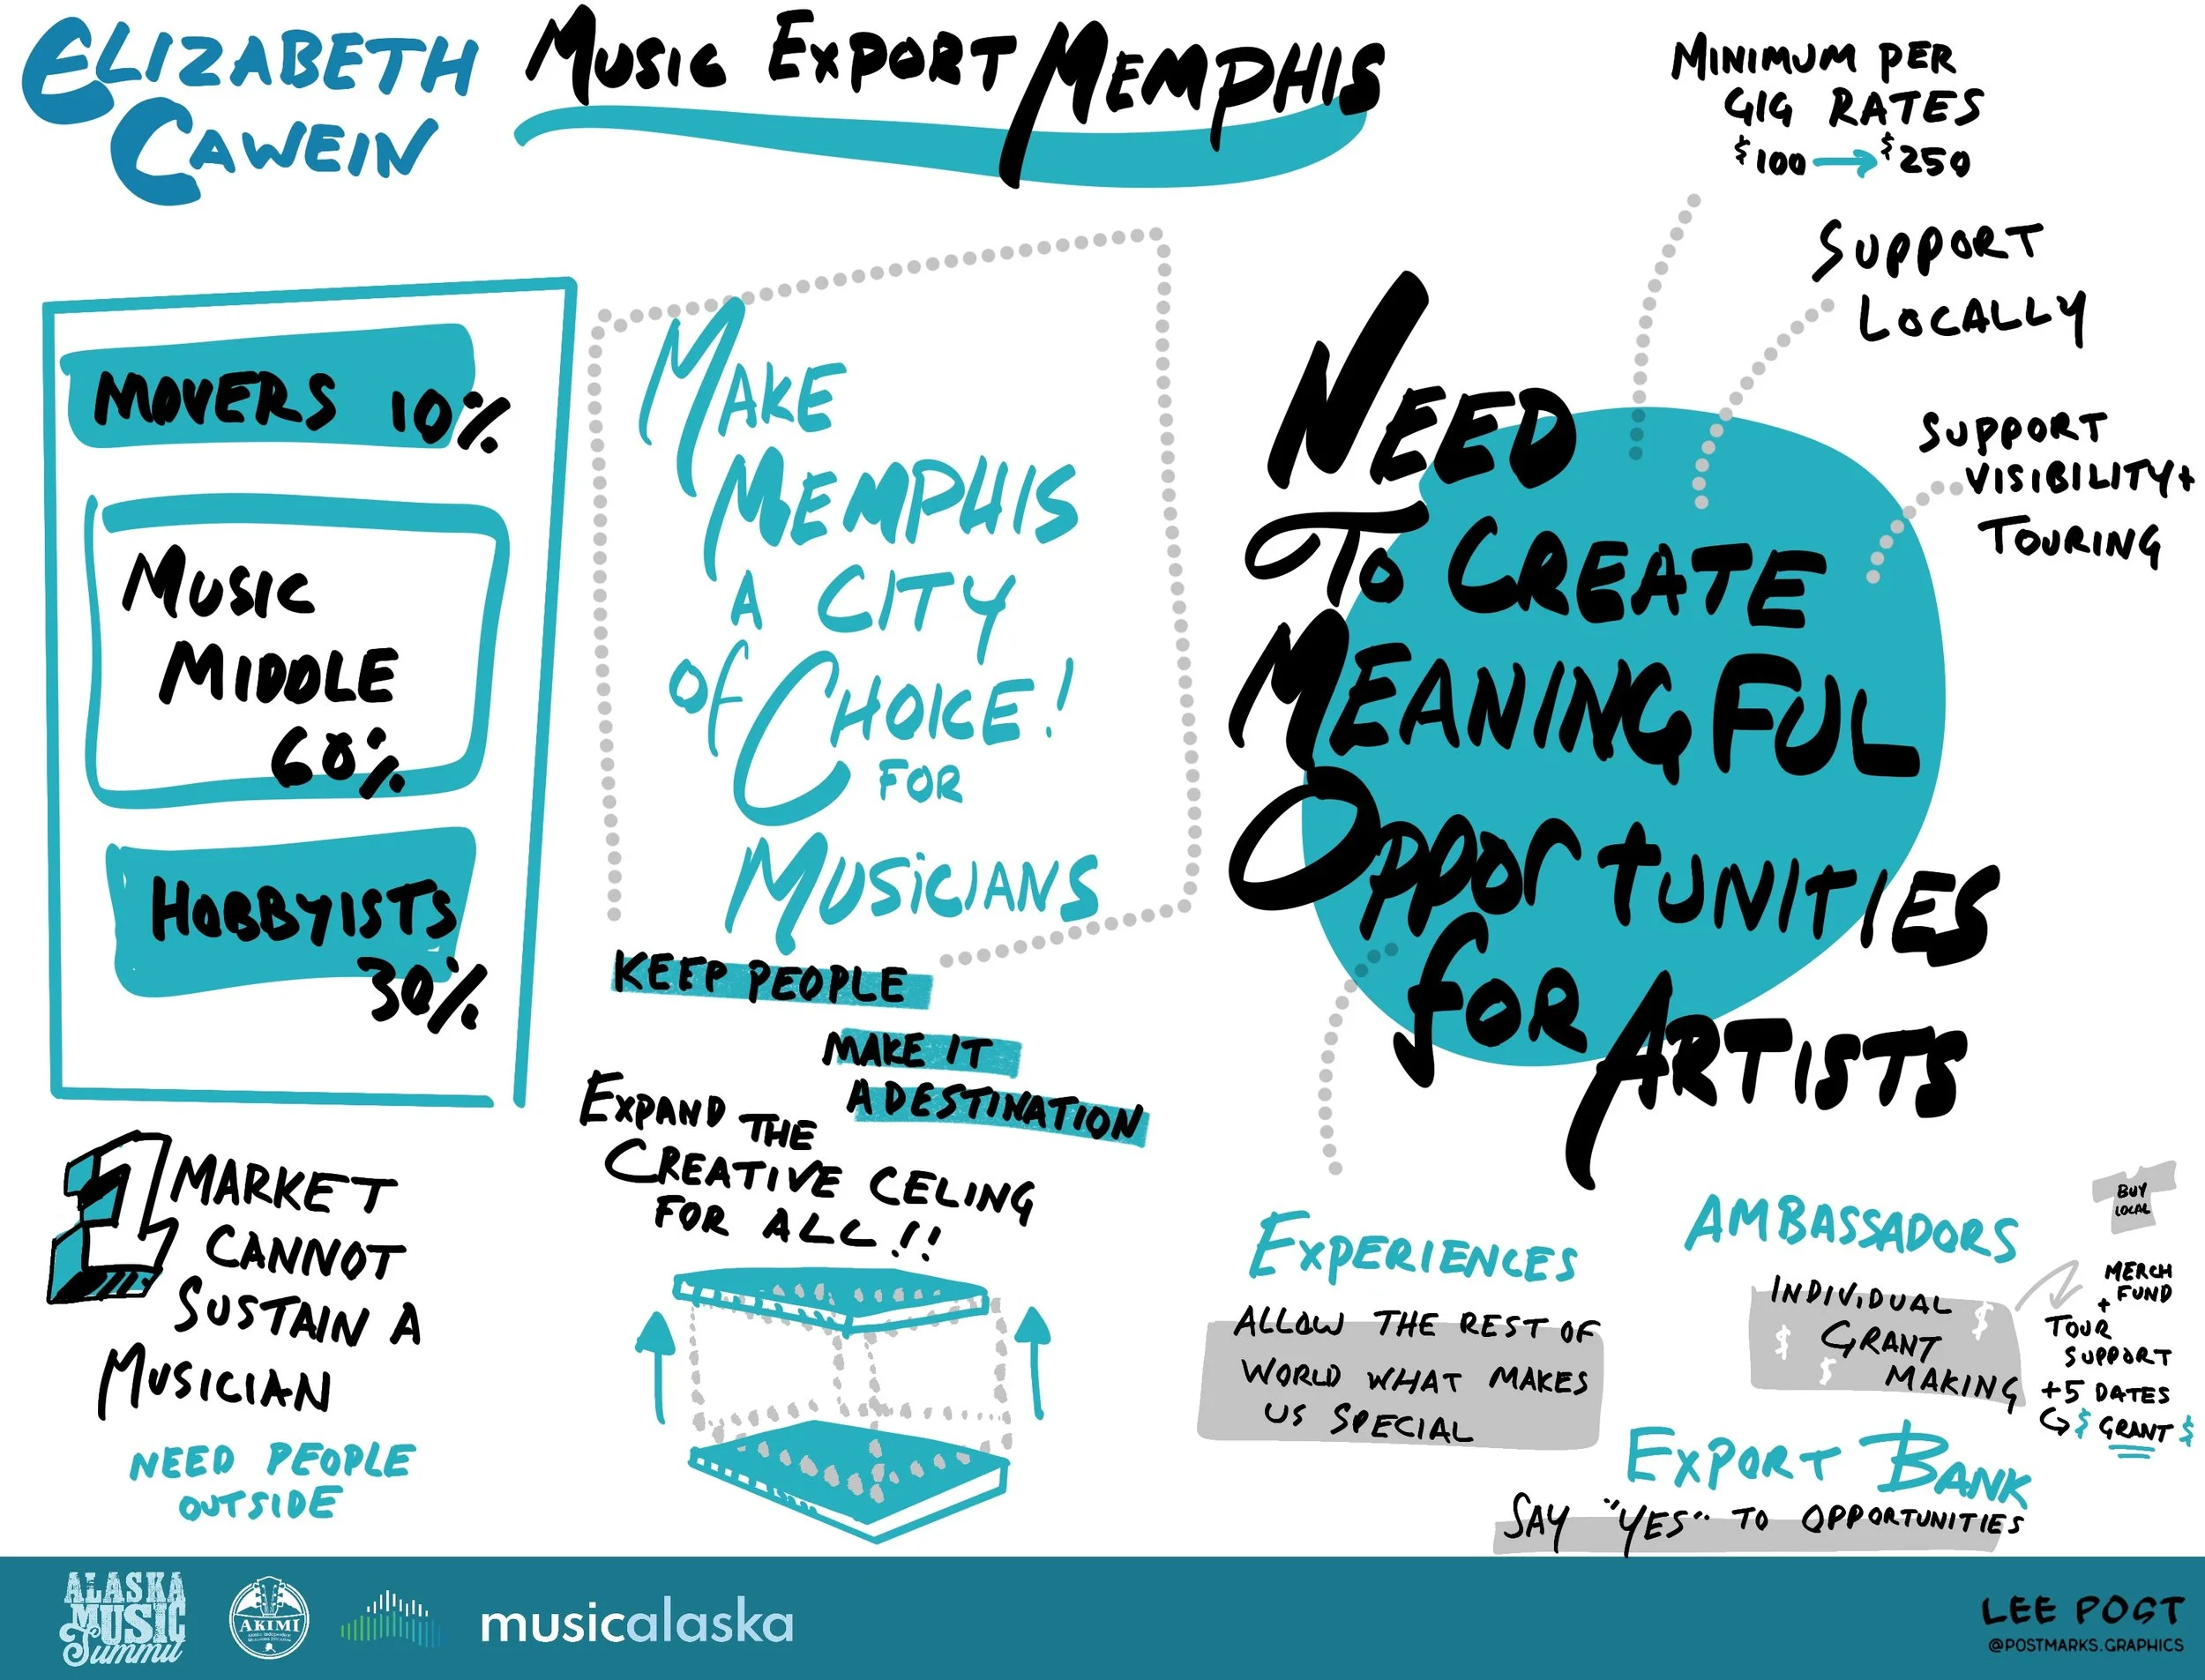 ELIZABETH
CAWEIN
MUSIC EXPORT MEMPHIS
MOVERS 10%
MUSIC
MIDDLE
60%
HOBBYISTS
30%
1 MARKET
CANNOT
SUSTAIN A
MUSICIAN
NEED PEOPLE
OUTSIDE
MAKE
MEMPHIS
A CITY
OF CHOICE!
FOR
MUSICIANS
KEEP PEOPLE
MAKE IT
A DESTINATION
EXPAND THE
CREATIVE CELING
FOR ALL!!
MINIMUM PER
GIG RATES
$100 → $250
SUPPORT
LOCALLY
SUPPORT
VISIBILITY+
TOURING
NEED
TO CREATE
MEANINGFUL
OPPORTUNITIES
FOR ARTISTS
EXPERIENCES
ALLOW THE REST OF
WORLD WHAT MAKES
US SPECIAL
AMBASSADORS
INDIVIDUAL $
$ GRANT
$ MAKING
BUY
LOCAL
MERCH
FUND
+
TOUR
SUPPORT
+5 DATES
↪ $ GRANT $
EXPORT BANK
SAY "YES" TO OPPORTUNITIES
ALASKA
MUSIC
Summit
AKIMI
musicalaska
LEE POST
@POSTMARKS.GRAPHICS